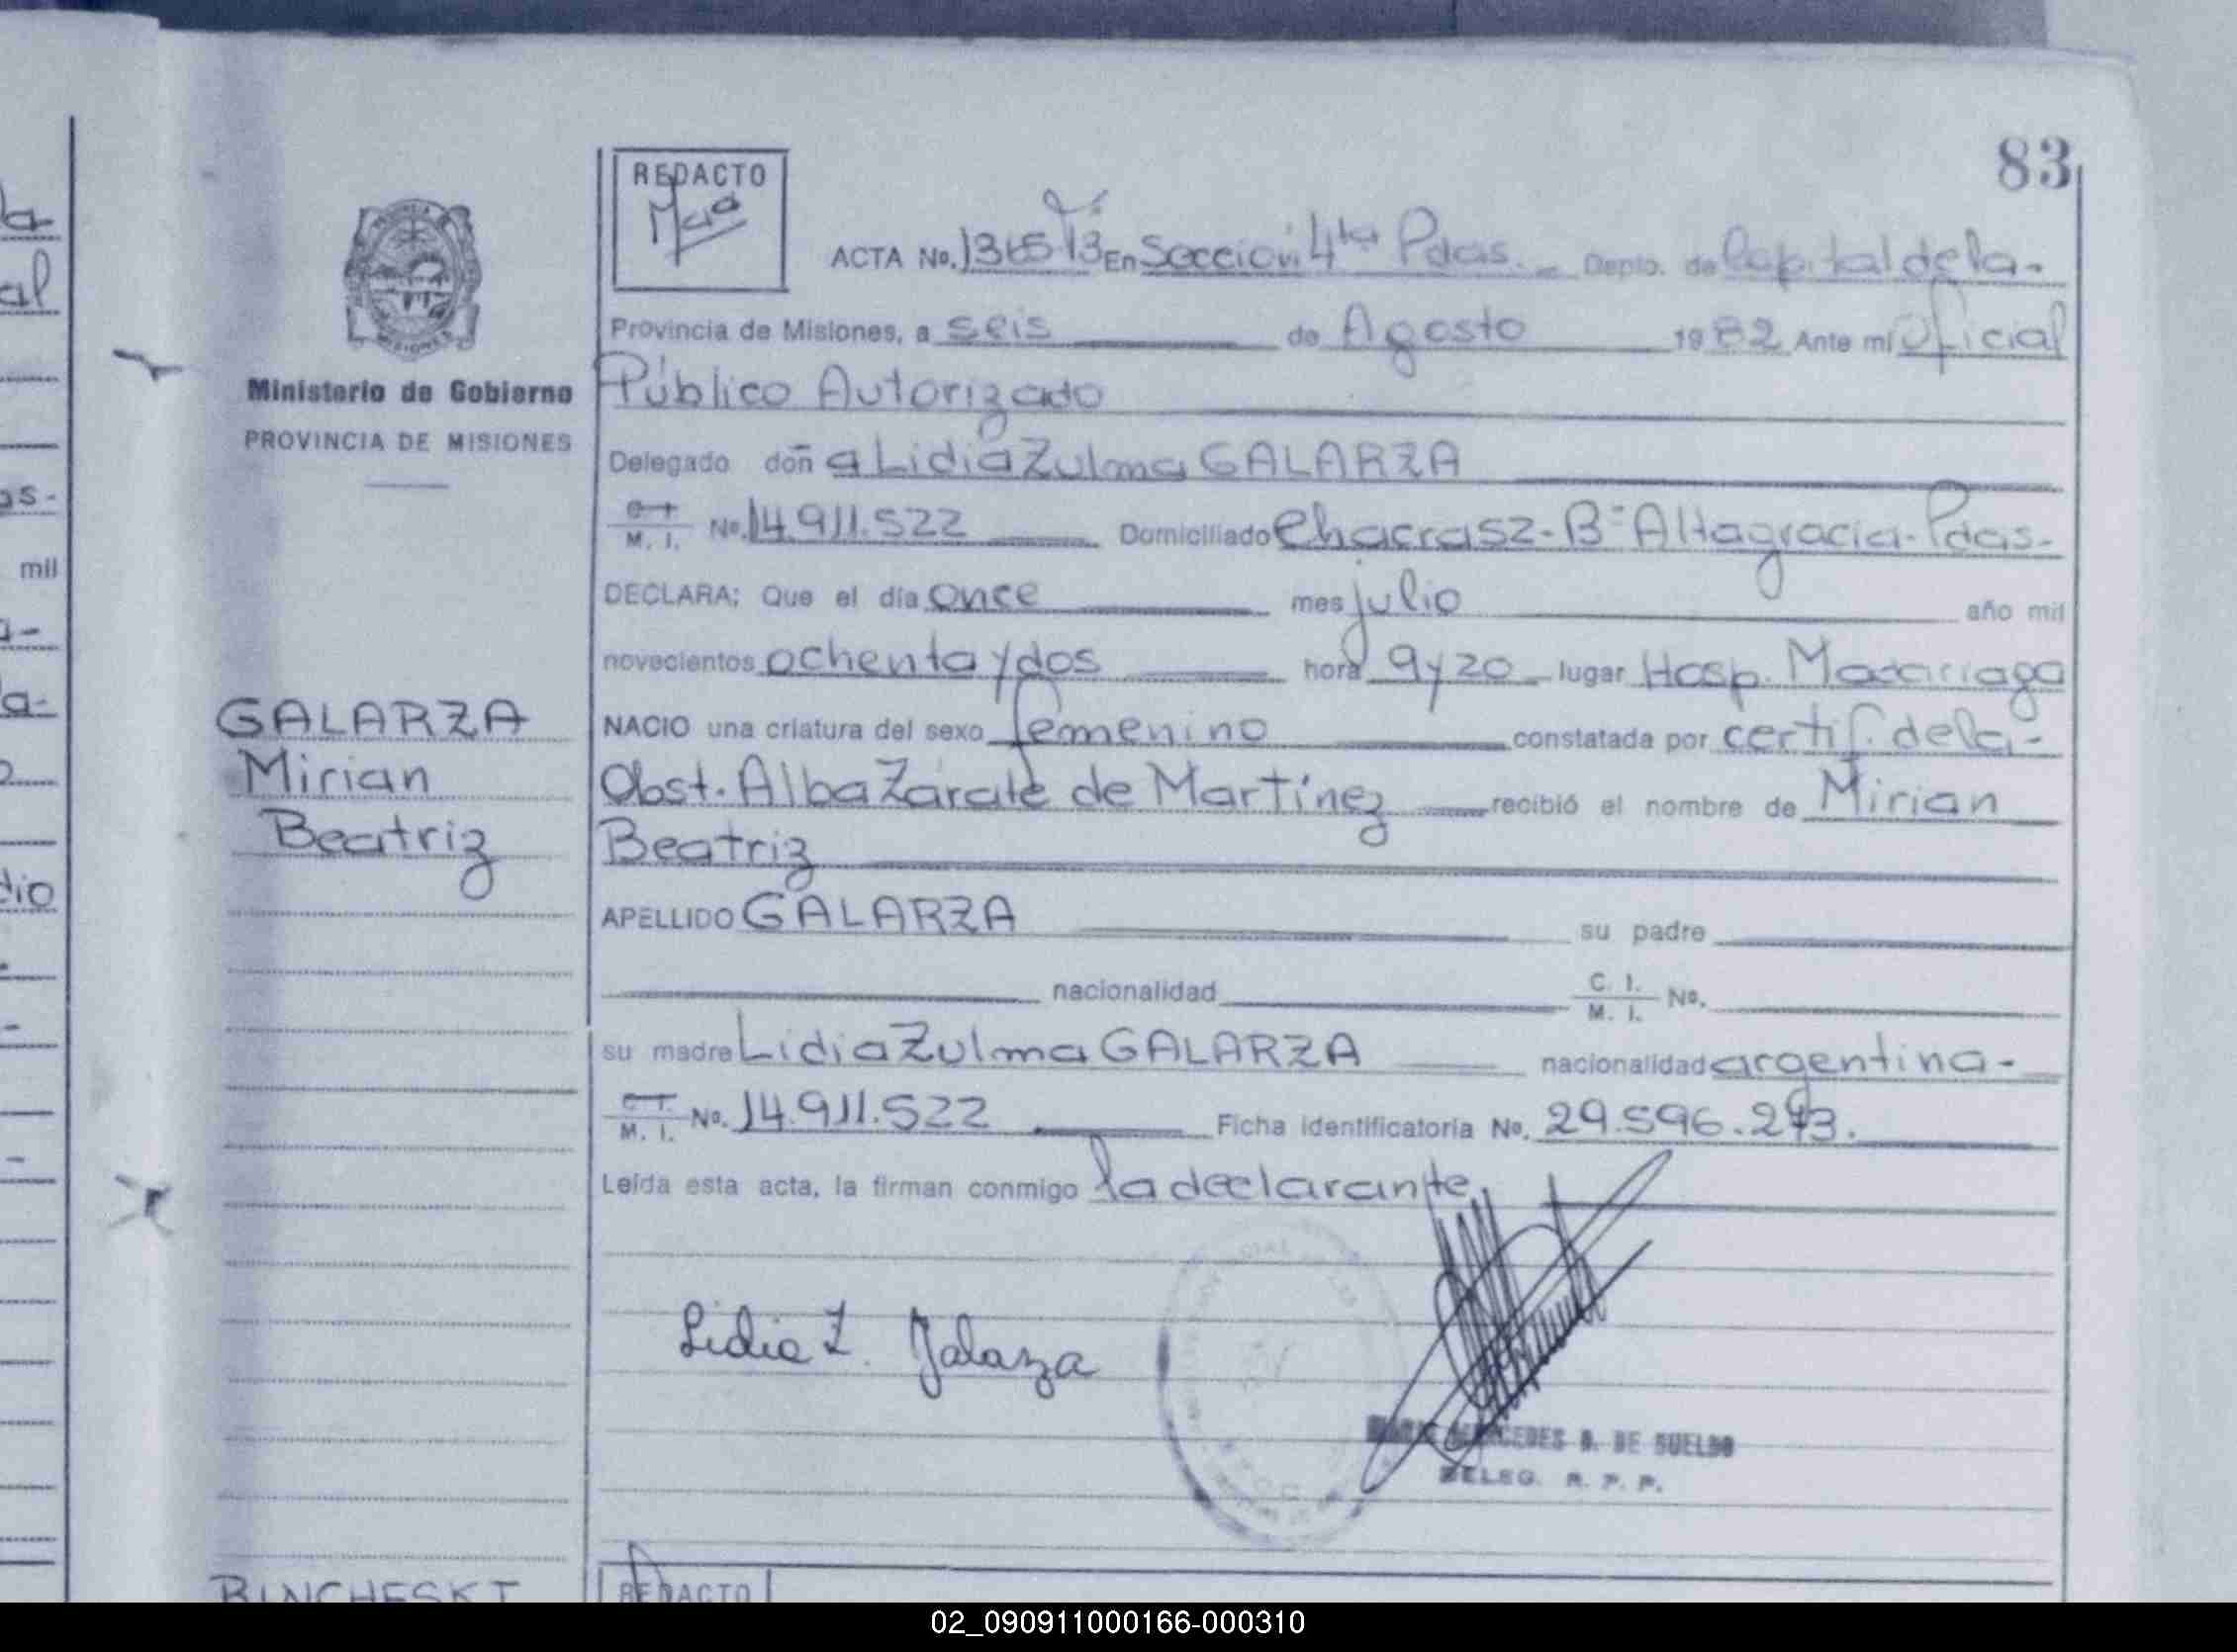 83
REDACTO
ACTA No. 1365 T3 En Sección 4ta Pdas. Depto. de Capital de la
Provincia de Misiones, a seis de Agosto 1982 Ante mí Oficial
Público Autorizado
Ministerio de Gobierno
PROVINCIA DE MISIONES
Delegado doña Lidia Zulma GALARZA
M. I. No. 14.911.522 Domiciliado Chacra 52-Bº Altagracia-Pdas-
DECLARA; Que el día once mes julio año mil
novecientos ochenta y dos hora 9 y 20 lugar Hosp. Madariaga
NACIO una criatura del sexo femenino constatada por certif. de la-
Obst. Alba Zárate de Martínez recibió el nombre de Mirian
Beatriz
GALARZA
Mirian
Beatriz
APELLIDO GALARZA su padre
nacionalidad C. I. M. I. No.
su madre Lidia Zulma GALARZA nacionalidad argentina-
M. I. No. 14.911.522 Ficha identificatoria No. 29.596.273.
Leída esta acta, la firman conmigo la declarante
Lidia Z. Galarza
MERCEDES B. DE SUELDO
DELEG. R. P. P.
BINCHESKI
REDACTO
mil
02_090911000166-000310